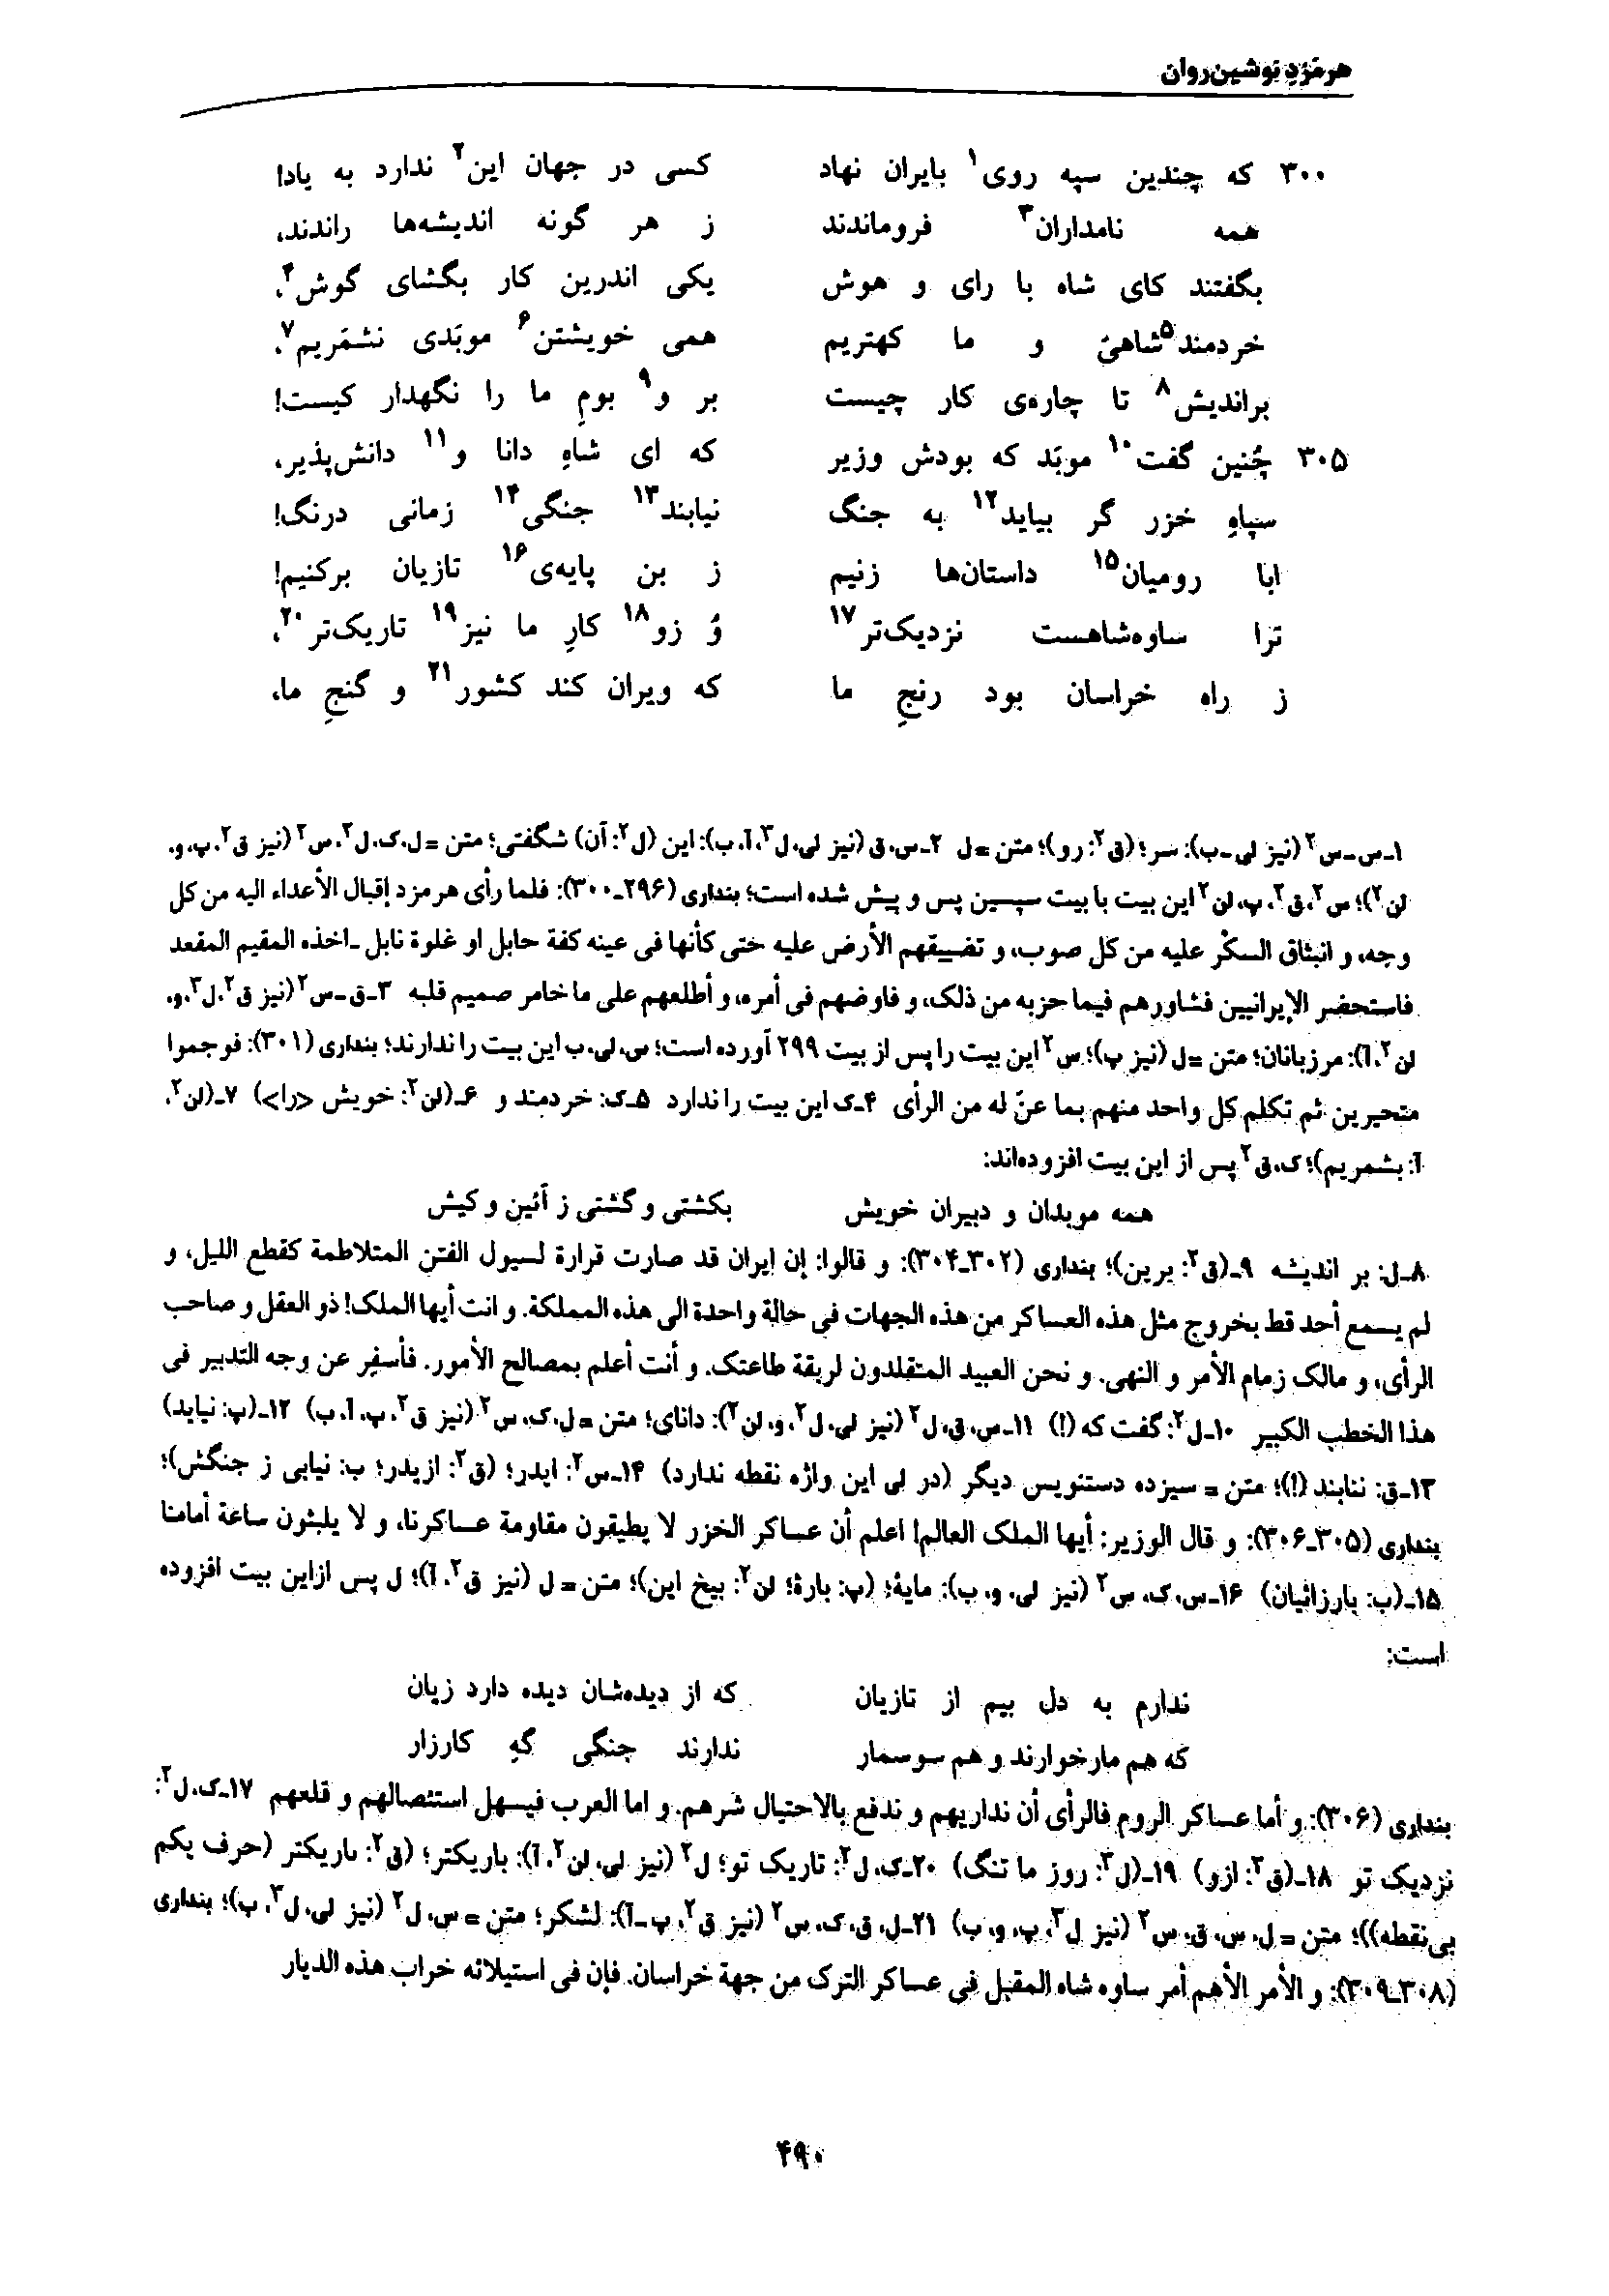 هرمزد نوشین‌روان
۳۰۰ که چندین سپه روی۱ بایران نهاد کسی در جهان این۲ ندارد به یاد!
همه نامداران۳ فروماندند ز هر گونه اندیشه‌ها راندند،
بگفتند کای شاه با رای و هوش یکی اندرین کار بگشای گوش۴،
خردمند۵ شاهیّ و ما کهتریم همی خویشتن۶ موبَدی نشمَریم۷،
براندیش۸ تا چاره‌ی کار چیست بر و۹ بومِ ما را نگهدار کیست!
۳۰۵ چُنین گفت۱۰ موبَد که بودش وزیر که ای شاهِ دانا و۱۱ دانش‌پذیر،
سپاهِ خزر گر بیاید۱۲ به جنگ نیابند۱۳ جنگی۱۴ زمانی درنگ!
ابا رومیان۱۵ داستان‌ها زنیم ز بن پایه‌ی۱۶ تازیان برکنیم!
ترا ساوه‌شاهست نزدیک‌تر۱۷ وُ زو۱۸ کارِ ما نیز۱۹ تاریک‌تر۲۰،
ز راه خراسان بود رنجِ ما که ویران کند کشور۲۱ و گنجِ ما،
۱ـ س ـ س۲ (نیز لی ـ ب): سر؛ (ق۲: رو)؛ متن = ل ۲ـ س، ق (نیز لی، ل۳، آ، ب): این (ل۲: آن) شگفتی؛ متن = ل، ک، ل۲، س۲ (نیز ق۲، پ، و،
لن۲)؛ س۲، ق۲، پ، لن۲ این بیت با بیت سپسین پس و پیش شده است؛ بنداری (۲۹۶ـ۳۰۰): فلما رأی هرمزد إقبال الأعداء الیه من کل
وجه، و انبثاق السکْر علیه من کل صوب، و تضییقهم الأرض علیه حتی کأنها فی عینه کفة حابل او غلوة نابل ـ اخذه المقیم المقعد
فاستحضر الإیرانیین فشاورهم فیما حزبه من ذلک، و فاوضهم فی أمره، و أطلعهم علی ما خامر صمیم قلبه ۳ـ ق ـ س۲ (نیز ق۲، ل۳، و،
لن۲، آ): مرزبانان؛ متن = ل (نیز پ)؛ س۲ این بیت را پس از بیت ۲۹۹ آورده است؛ س، لی، ب این بیت را ندارند؛ بنداری (۳۰۱): فوجموا
متحیرین ثم تکلم کل واحد منهم بما عنّ له من الرأی ۴ـ ک این بیت را ندارد ۵ـ ک: خردمند و ۶ـ (لن۲: خویش <را>) ۷ـ (لن۲،
آ: بشمریم)؛ ک، ق۲ پس از این بیت افزوده‌اند:
همه موبدان و دبیران خویش بکشتی و گشتی ز آئین و کیش
۸ـ ل: بر اندیشه ۹ـ (ق۲: برین)؛ بنداری (۳۰۲ـ۳۰۴): و قالوا: إن إیران قد صارت قرارة لسیول الفتن المتلاطمة کقطع اللیل، و
لم یسمع أحد قط بخروج مثل هذه العساکر من هذه الجهات فی حالة واحدة الی هذه المملکة. و انت أیها الملک! ذو العقل و صاحب
الرأی، و مالک زمام الأمر و النهی. و نحن العبید المتقلدون لربقة طاعتک. و أنت أعلم بمصالح الأمور. فأسفِر عن وجه التدبیر فی
هذا الخطب الکبیر ۱۰ـ ل۲: گفت که (!) ۱۱ـ س، ق، ل۲ (نیز لی، ل۲، و، لن۲): دانای؛ متن = ل، ک، س۲ (نیز ق۲، پ، آ، ب) ۱۲ـ (پ: نیاید)
۱۳ـ ق: نتابند (!)؛ متن = سیزده دستنویس دیگر (در لی این واژه نقطه ندارد) ۱۴ـ س۲: ایدر؛ (ق۲: ازیدر؛ ب: نیابی ز جنگش)؛
بنداری (۳۰۵ـ۳۰۶): و قال الوزیر: أیها الملک العالم! اعلم أن عساکر الخزر لا یطیقون مقاومة عساکرنا، و لا یلبثون ساعة أمامنا
۱۵ـ (ب: بارزانیان) ۱۶ـ س، ک، س۲ (نیز لی، و، ب): مایهٔ؛ (پ: بارهٔ؛ لن۲: بیخ این)؛ متن = ل (نیز ق۲، آ)؛ ل پس ازاین بیت افزوده
است:
ندارم به دل بیم از تازیان که از دیده‌شان دیده دارد زیان
که هم مارخوارند و هم سوسمار ندارند جنگی گهِ کارزار
بنداری (۳۰۶): و أما عساکر الروم فالرأی أن نداریهم و ندفع بالاحتیال شرهم. و اما العرب فیسهل استئصالهم و قلعهم ۱۷ـ ک، ل۲:
نزدیک تو ۱۸ـ (ق۲: ازو) ۱۹ـ (ل۳: روز ما تنگ) ۲۰ـ ک، ل۲: تاریک تو؛ ل۲ (نیز لی، لن۲، آ): باریکتر؛ (ق۲: ںاریکتر (حرف یکم
بی‌نقطه))؛ متن = ل، س، ق، س۲ (نیز ل۳، پ، و، ب) ۲۱ـ ل، ق، ک، س۲ (نیز ق۲، پ ـ آ): لشکر؛ متن = س، ل۲ (نیز لی، ل۳، ب)؛ بنداری
(۳۰۸ـ۳۰۹): و الأمر الأهم أمر ساوه شاه المقبل فی عساکر الترک من جهة خراسان. فإن فی استیلائه خراب هذه الدیار
۴۹۰